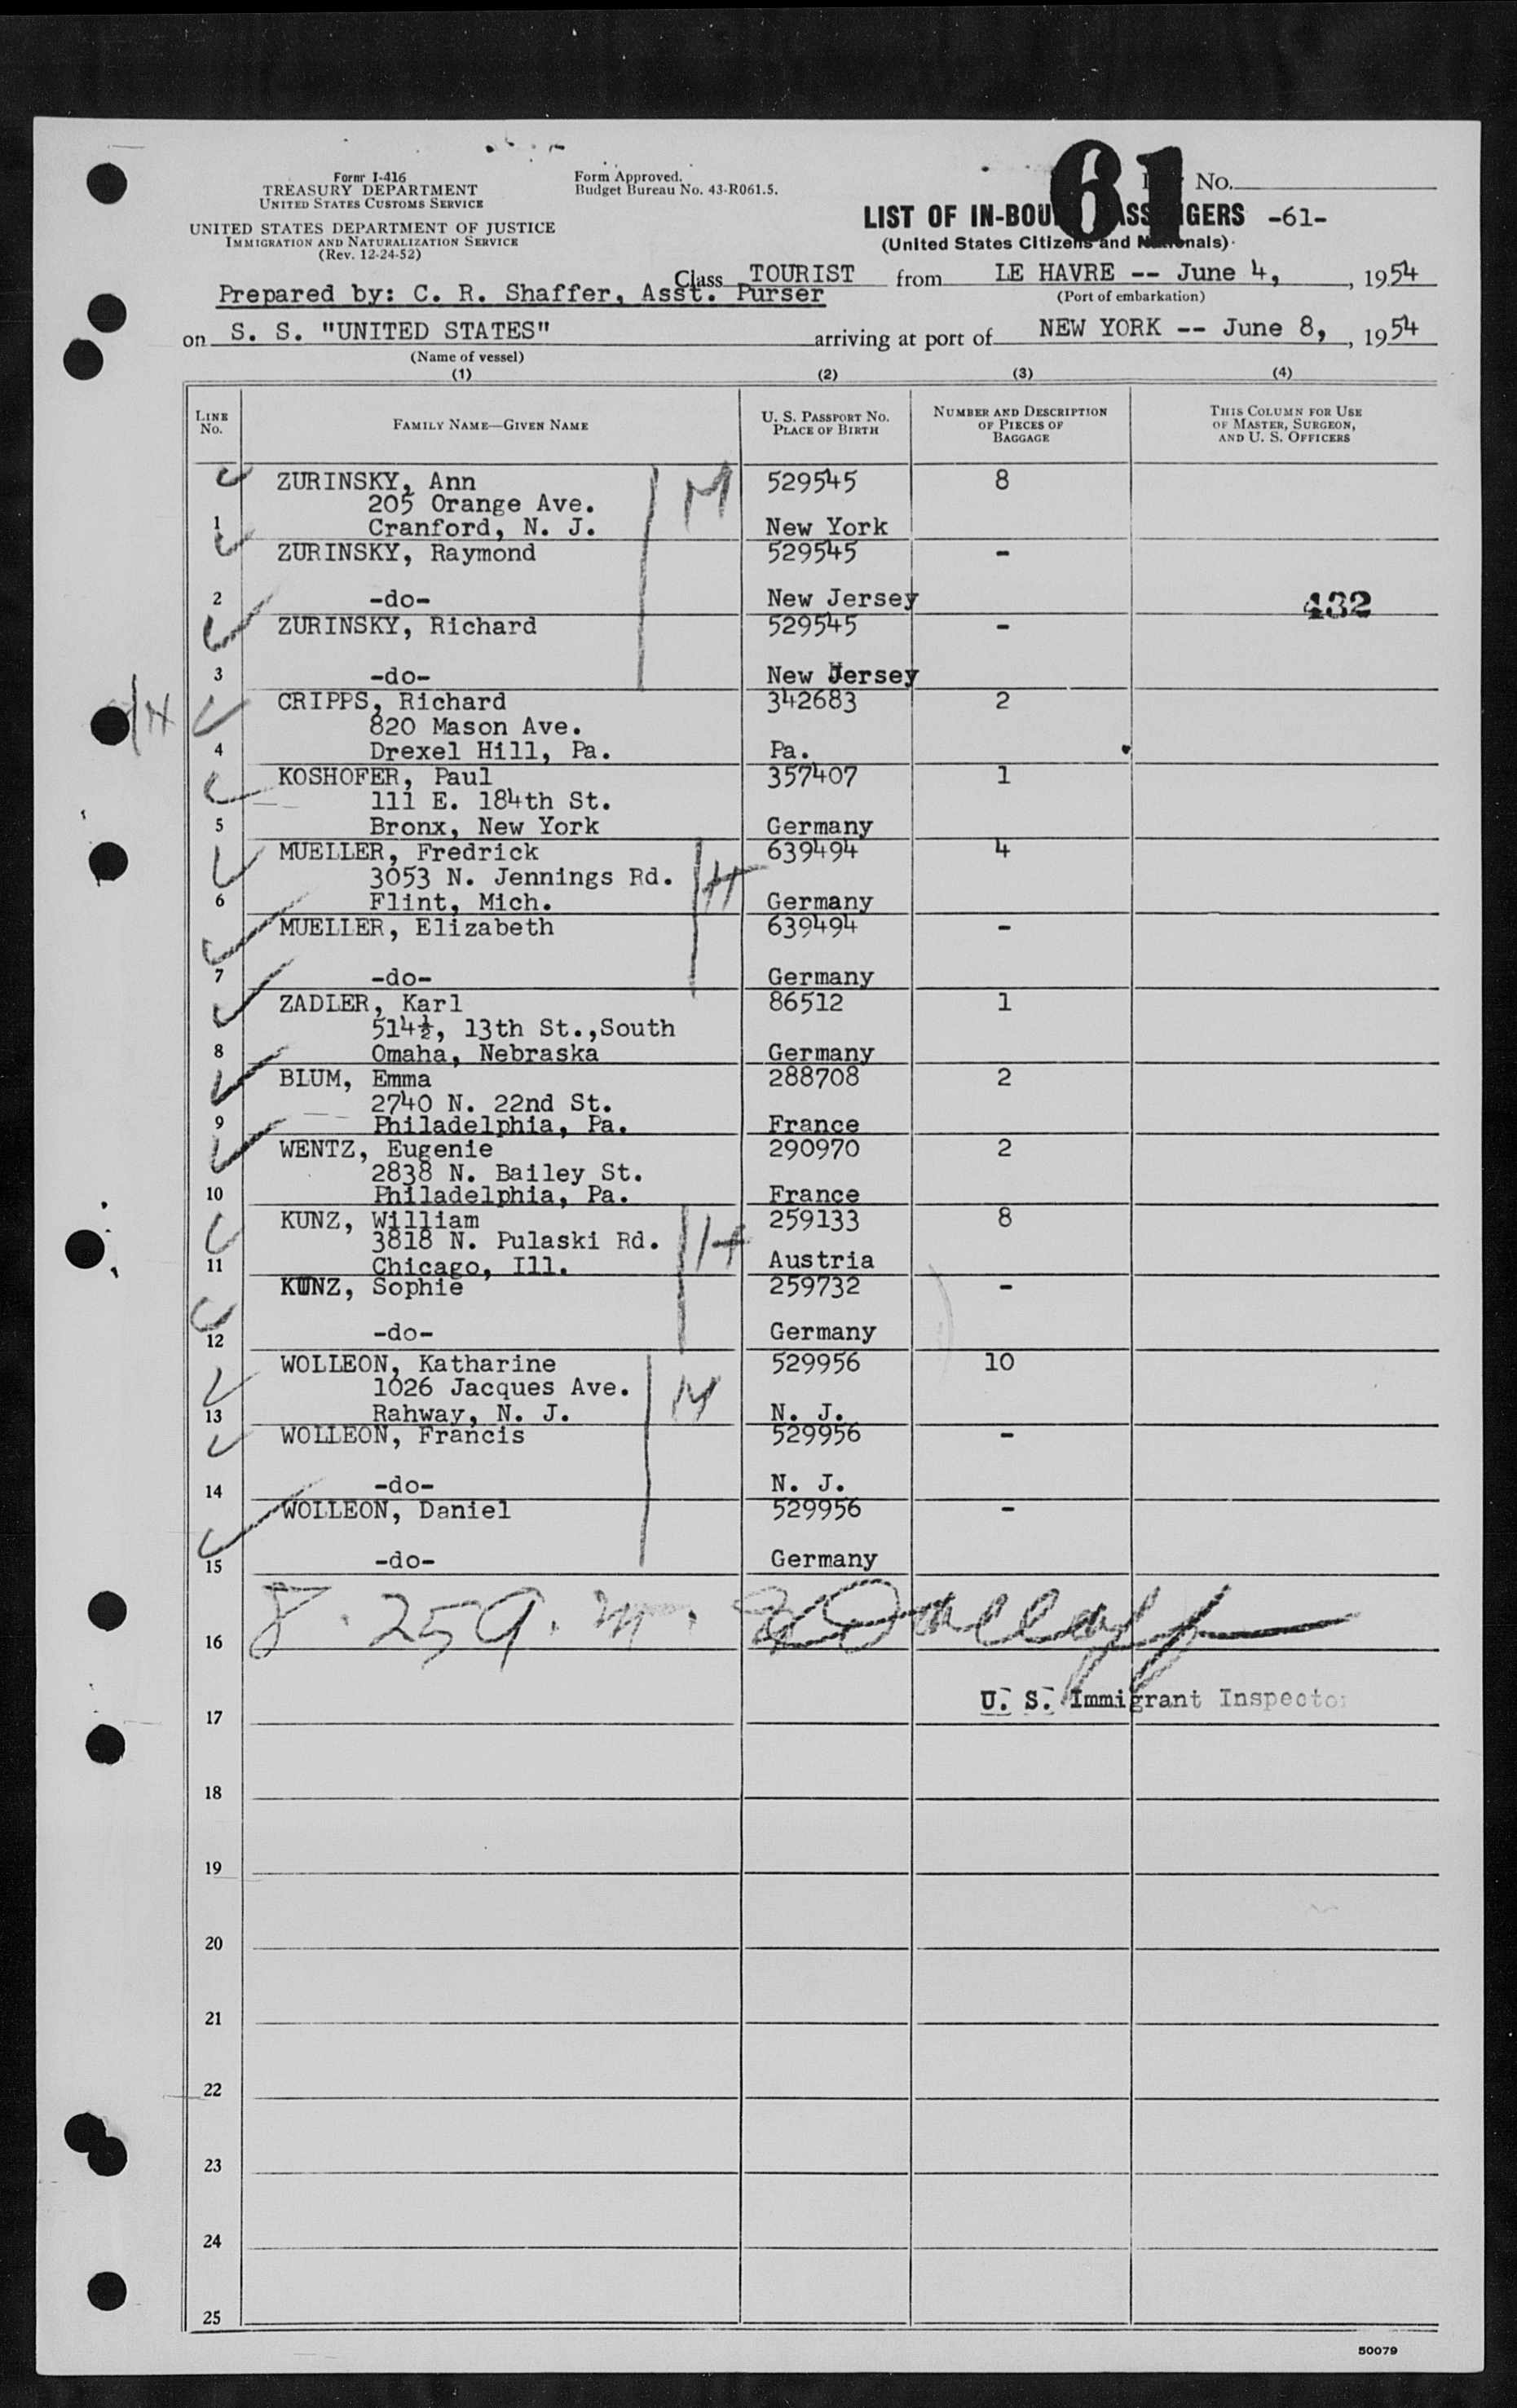 Form I-416
TREASURY DEPARTMENT
UNITED STATES CUSTOMS SERVICE
UNITED STATES DEPARTMENT OF JUSTICE
IMMIGRATION AND NATURALIZATION SERVICE
(Rev. 12-24-52)
Form Approved.
Budget Bureau No. 43-R061.5.
61
No.
LIST OF IN-BOUND PASSENGERS -61-
(United States Citizens and Nationals)
Class TOURIST from LE HAVRE -- June 4, , 1954
Prepared by: C. R. Shaffer, Asst. Purser
(Port of embarkation)
on S. S. "UNITED STATES" arriving at port of NEW YORK -- June 8, , 1954
(Name of vessel)
(1) (2) (3) (4)
LINE No. FAMILY NAME—GIVEN NAME U. S. PASSPORT NO. PLACE OF BIRTH NUMBER AND DESCRIPTION OF PIECES OF BAGGAGE THIS COLUMN FOR USE OF MASTER, SURGEON, AND U. S. OFFICERS
ZURINSKY, Ann M 529545 8
205 Orange Ave.
1 Cranford, N. J. New York
ZURINSKY, Raymond 529545 -
2 -do- New Jersey 432
ZURINSKY, Richard 529545 -
3 -do- New Jersey
H CRIPPS, Richard 342683 2
820 Mason Ave.
4 Drexel Hill, Pa. Pa.
KOSHOFER, Paul 357407 1
111 E. 184th St.
5 Bronx, New York Germany
MUELLER, Fredrick 639494 4
3053 N. Jennings Rd. H
6 Flint, Mich. Germany
MUELLER, Elizabeth 639494 -
7 -do- Germany
ZADLER, Karl 86512 1
514½, 13th St.,South
8 Omaha, Nebraska Germany
BLUM, Emma 288708 2
2740 N. 22nd St.
9 Philadelphia, Pa. France
WENTZ, Eugenie 290970 2
2838 N. Bailey St.
10 Philadelphia, Pa. France
KUNZ, William 259133 8
3818 N. Pulaski Rd. H
11 Chicago, Ill. Austria
KUNZ, Sophie 259732 -
12 -do- Germany
WOLLEON, Katharine 529956 10
1026 Jacques Ave. M
13 Rahway, N. J. N. J.
WOLLEON, Francis 529956 -
14 -do- N. J.
WOLLEON, Daniel 529956 -
15 -do- Germany
16
U. S. Immigrant Inspector
17
18
19
20
21
22
23
24
25
50079